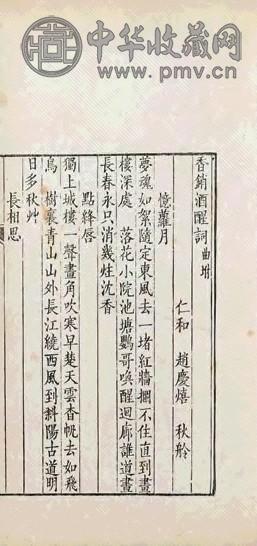 中华收藏网
www.pmv.cn
香銷酒醒詞 曲坿
仁和 趙慶熺 秋舲
憶蘿月
夢魂如絮隨定東風去一堵紅牆攔不住直到畫
樓深處 落花小院池塘鸚哥喚醒迴廊誰道晝
長春永只消幾炷沈香
點絳唇
獨上城樓一聲畫角吹寒早楚天雲杳帆去如飛
鳥 樹裹青山山外長江繞西風到斜陽古道明
日多秋艸
長相思